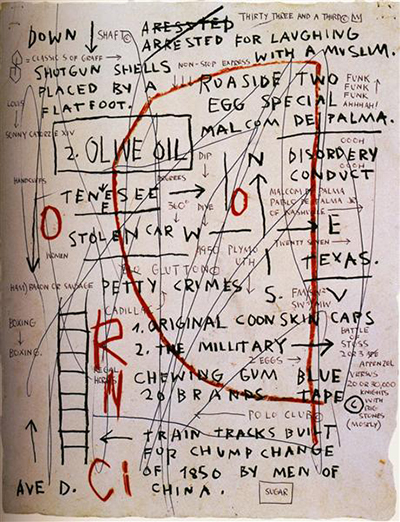 THIRTY THREE AND A THIRD©
DOWN ↓ SHAFT© ARESSTED
ARRESTED FOR LAUGHING
= CLASSIC S OF GRAFF → NON-STOP EXPRESS WITH A MUSLIM.
SHOTGUN SHELLS
PLACED BY A
FLATFOOT.
ROASIDE TWO
EGG SPECIAL
MALCOM DE PALMA.
FUNK ↑
FUNK
FUNK
AHHHAH!
LOUIS
SONNY CATORZE XIV
2. OLIVE OIL
DIP
N
OOOH
DISORDERY
OOOH
CONDUCT
HANDCUFFS
DEGREES
TENESEE →
E
360°
DIVE
O
O
MALCOM DE PALMA
PABLO DE PALMA JR.
OF NASHVILLE
STOLEN CAR W
→ E
1950 PLYMOUTH
I
TWENTY SEVEN →
WOMEN
GLUTTON©
TEXAS.
HAM/BACON OR SAUSAGE
PETTY CRIMES
S.
V
CADILLAC
1. ORIGINAL COON SKIN CAPS
BOXING
↓
BOXING.
R
2. THE MILLITARY →
BATTLE
OF
STYSS
2 OR 3 APPENZEL
VERSUS
20 OR 30,000
KNIGHTS
WITH
STONES
(MOSTLY)
2 EGGS →
REGAL
N
CHEWING GUM BLUE
20 BRANDS TAPE
← POLO CLUB©
← TRAIN TRACKS BUILT
FOR CHUMP CHANGE
CI
OF 1850 BY MEN OF
AVE D.
CHINA.
SUGAR